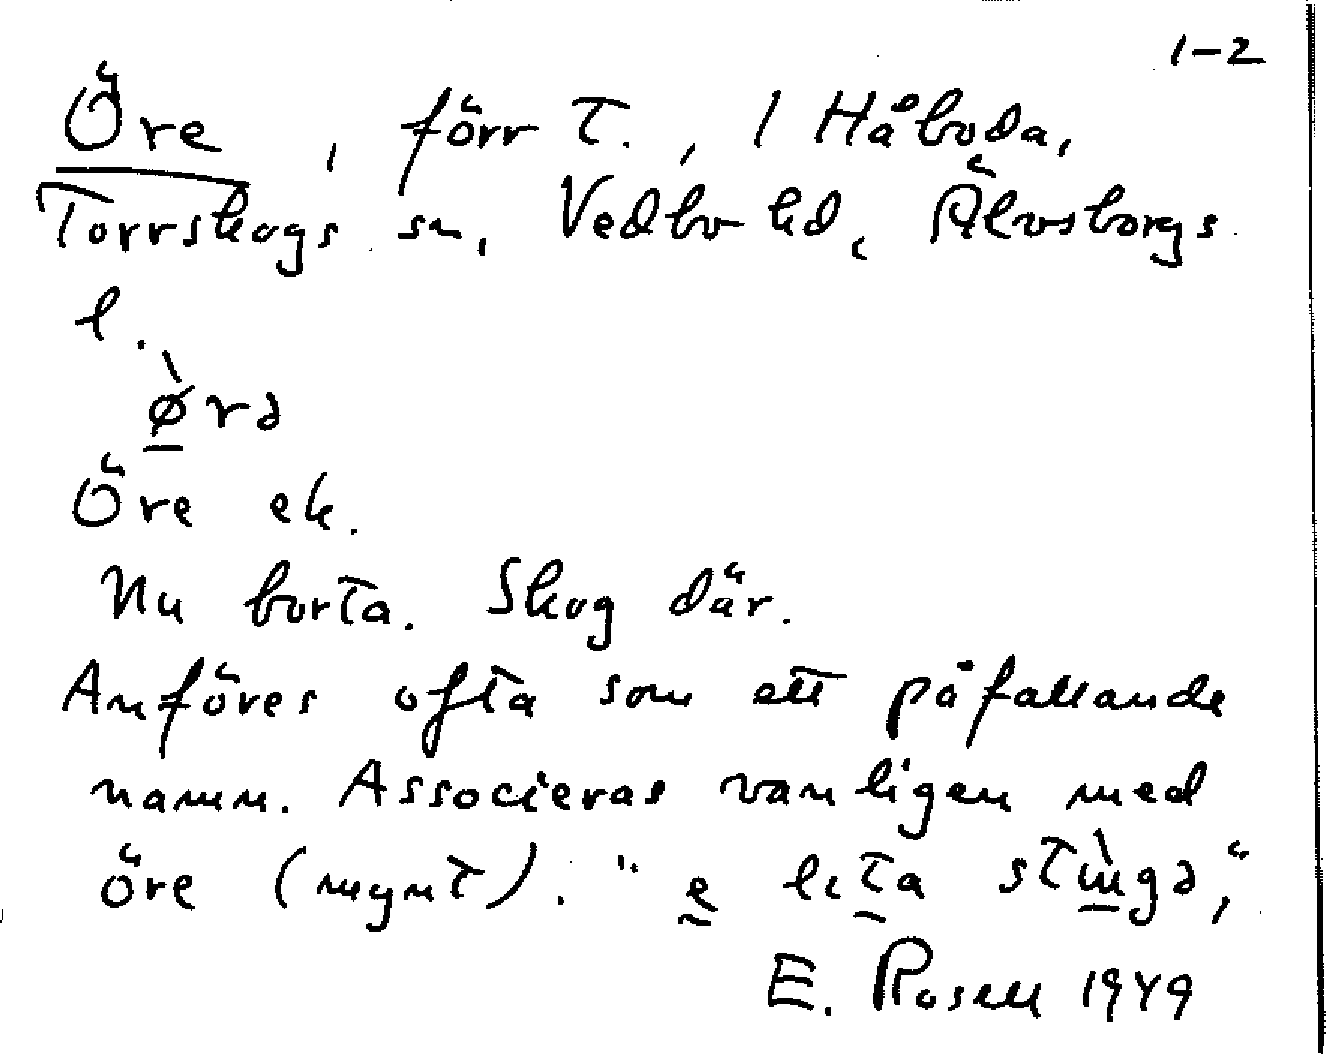 1-2
Öre, förr t., 1 Håboda,
Torrskogs sn, Vedbo hd, Älvsborgs
l.
ø̀rə
Öre ek.
Nu borta. Skog där.
Anföres ofta som ett påfallande
namn. Associeras vanligen med
öre (mynt). "e lita stùgə,"
E. Rosell 1949